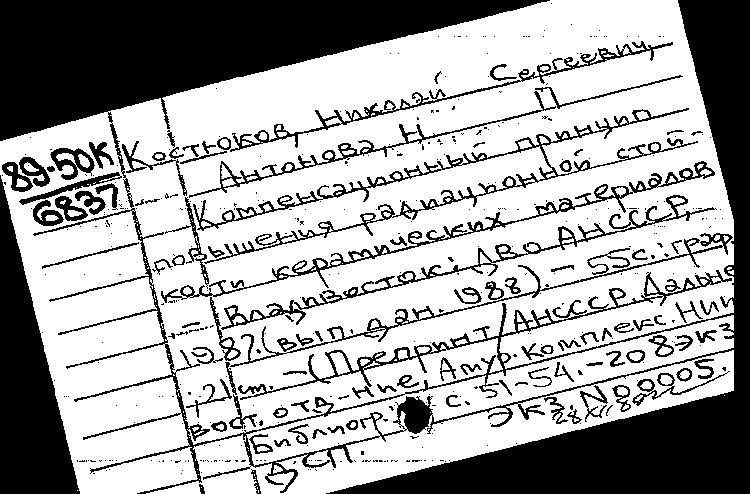 89-50К
6837
Костюков, Николай Сергеевич,
Антонова, Н. П.
Компенсационный принцип
повышения радиационной стой-
кости керамических материалов
. – Владивосток: ДВО АНСССР,
1987. (вып. дан. 1988). – 55 с.: граф.
; 21 см. – (Препринт / АНСССР. Дальне-
вост. отд-ние, Амур. комплекс. НИИ
Библиогр.: с. 51-54. – 208 экз
ДСП. экз. N00005.